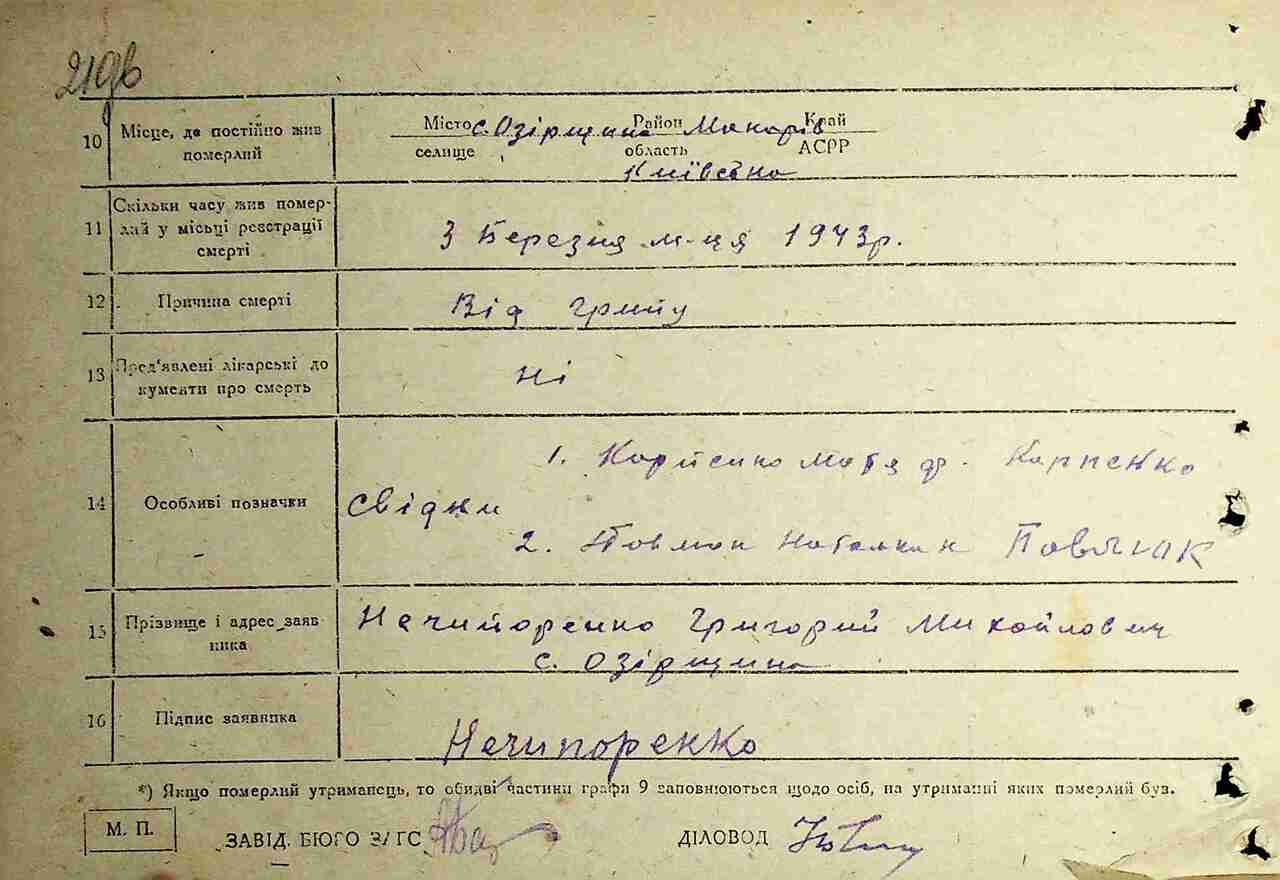 219б
10 Місце, де постійно жив померлий
Місто с. Озірщина Район Макарів Край
селище область АСРР
Київська
11 Скільки часу жив помер-
лий у місьці реєстрації
смерті
3 Березня м-ця 1943р.
12 Причина смерті Від грипу
13 Пред'явлені лікарські до
кументи про смерть
ні
14 Особливі позначки
1. Карпенко Мотя Карпенко
свідки
2. Товмач
15 Прізвище і адрес заяв
ника
Нечипоренко Григорий Михайлович
с. Озірщина
16 Підпис заявника Нечипоренко
*) Якщо померлий утриманець, то обидві частини графи 9 заповнюються щодо осіб, на утриманні яких померлий був.
М. П.
ЗАВІД. БЮРО ЗАГС ДІЛОВОД